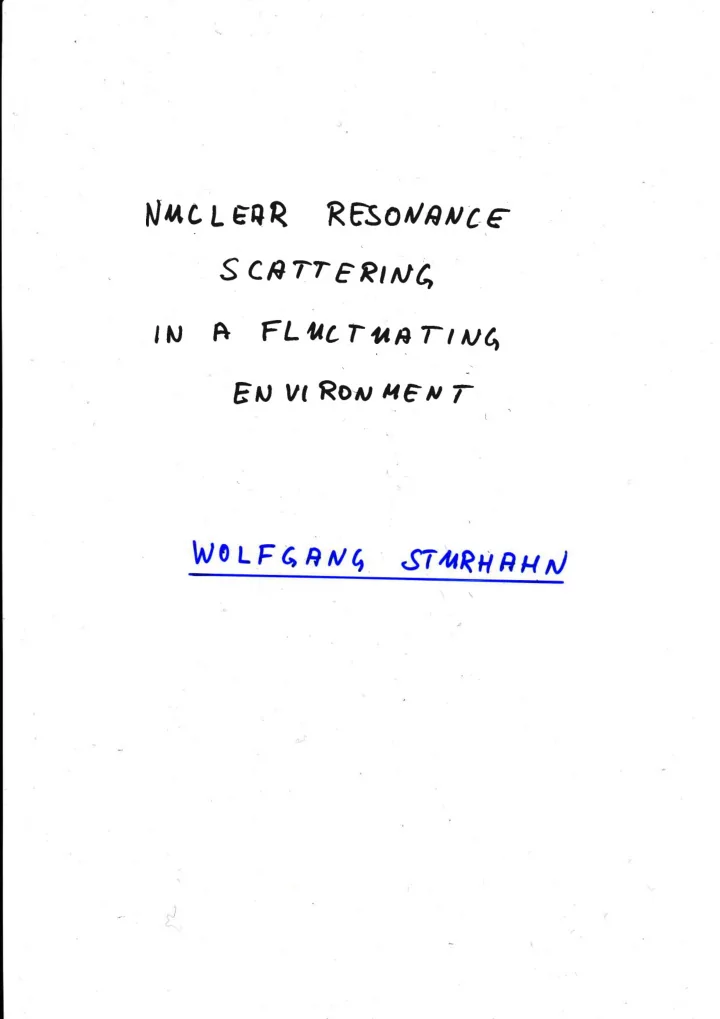 NUCLEAR RESONANCE
SCATTERING
IN A FLUCTUATING
ENVIRONMENT
WOLFGANG STURHAHN